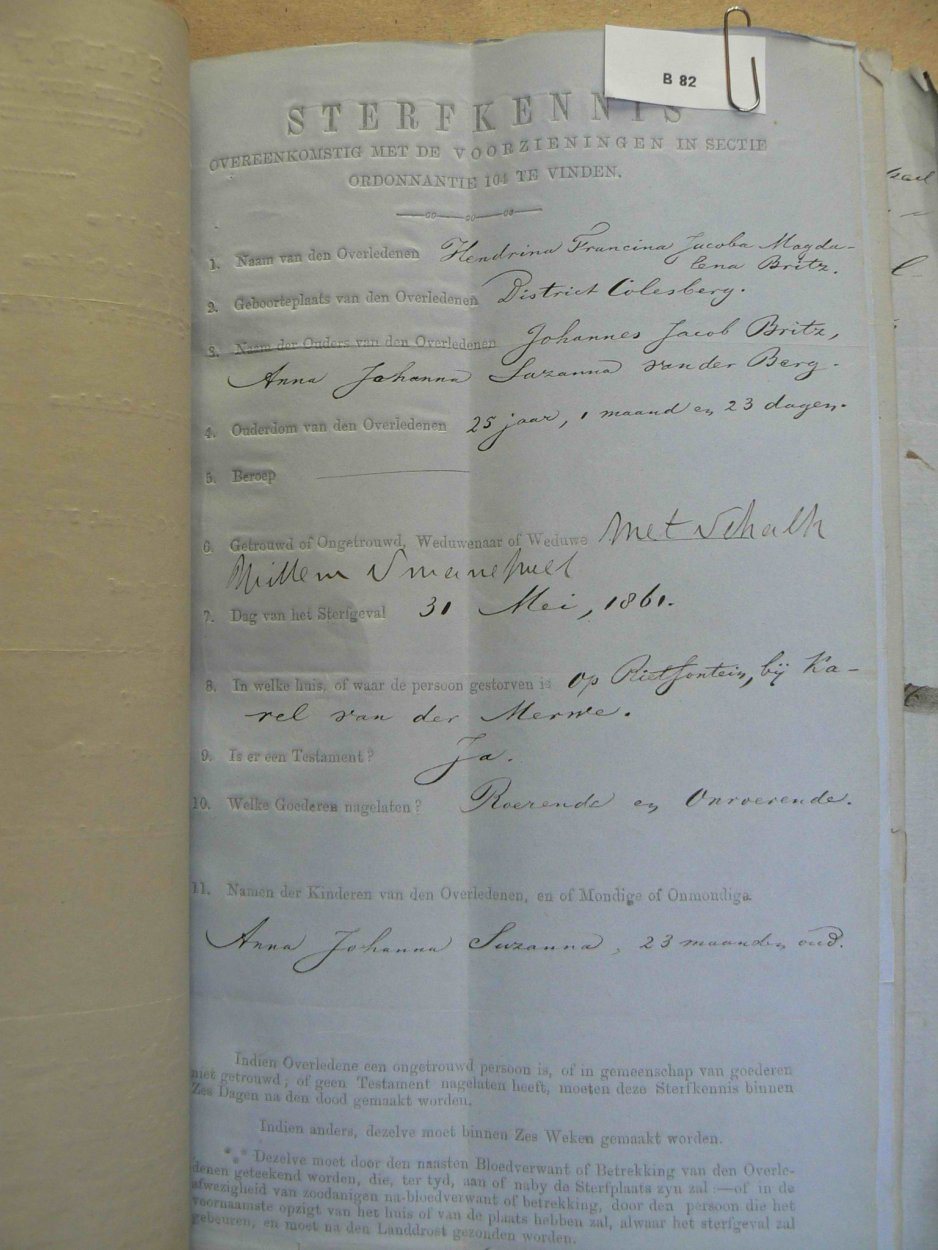 B 82
STERFKENNIS
OVEREENKOMSTIG MET DE VOORZIENINGEN IN SECTIE
ORDONNANTIE 104 TE VINDEN.
1. Naam van den Overledenen Hendrina Francina Jacoba Magda-
lena Britz.
2. Geboorteplaats van den Overledenen District Colesberg.
3. Naam der Ouders van den Overledenen Johannes Jacob Britz,
Anna Johanna Suzanna van der Berg.
4. Ouderdom van den Overledenen 25 jaar, 1 maand en 23 dagen.
5. Beroep
6. Getrouwd of Ongetrouwd, Weduwenaar of Weduwe Met Schalk
Willem
7. Dag van het Sterfgeval 31 Mei, 1861.
8. In welke huis, of waar de persoon gestorven is op Rietfontein, bij Ka-
rel van der Merwe.
9. Is er een Testament? Ja.
10. Welke Goederen nagelaten? Roerende en Onroerende.
11. Namen der Kinderen van den Overledenen, en of Mondige of Onmondige
Anna Johanna Suzanna, 23 maanden oud.
Indien Overledene een ongetrouwd persoon is, of in gemeenschap van goederen
niet getrouwd; of geen Testament nagelaten heeft, moeten deze Sterfkennis binnen
Zes Dagen na den dood gemaakt worden.
Indien anders, dezelve moet binnen Zes Weken gemaakt worden.
*** Dezelve moet door den naasten Bloedverwant of Betrekking van den Overle-
denen geteekend worden, die, ter tyd, aan of naby de Sterfplaats zyn zal:—of in de
afwezigheid van zoodanigen na-bloedverwant of betrekking, door den persoon die het
voornaamste opzigt van het huis of van de plaats hebben zal, alwaar het sterfgeval zal
gebeuren, en moet na den Landdrost gezonden worden.